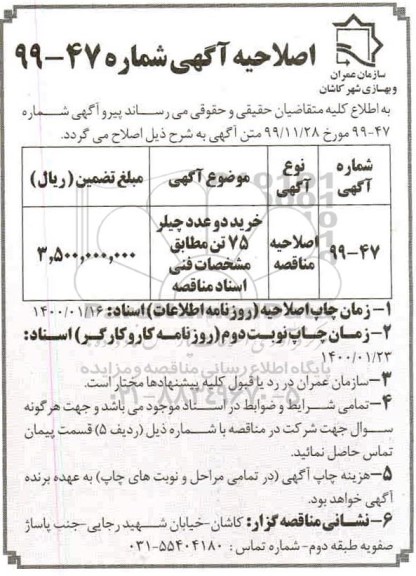 سازمان عمران
وبهسازی شهر کاشان
اصلاحیه آگهی شماره ۴۷-۹۹
به اطلاع کلیه متقاضیان حقیقی و حقوقی می رساند پیرو آگهی شماره
۴۷-۹۹ مورخ ۹۹/۱۱/۲۸ متن آگهی به شرح ذیل اصلاح می گردد.
شماره آگهی | نوع آگهی | موضوع آگهی | مبلغ تضمین (ریال)
۴۷-۹۹ | اصلاحیه مناقصه | خرید دو عدد چیلر ۷۵ تن مطابق مشخصات فنی اسناد مناقصه | ۳,۵۰۰,۰۰۰,۰۰۰
۱- زمان چاپ اصلاحیه (روزنامه اطلاعات) اسناد: ۱۴۰۰/۰۱/۱۶
۲- زمان چاپ نوبت دوم (روزنامه کاروکارگر) اسناد:
۱۴۰۰/۰۱/۲۳
پایگاه اطلاع رسانی مناقصه و مزایده
۳- سازمان عمران در رد یا قبول کلیه پیشنهادها مختار است.
۰۲۱-۸۸۳۴۹۶۷۰-۵
۴- تمامی شرایط و ضوابط در اسناد موجود می باشد و جهت هرگونه
سوال جهت شرکت در مناقصه با شماره ذیل (ردیف ۵) قسمت پیمان
تماس حاصل نمائید.
۵- هزینه چاپ آگهی (در تمامی مراحل و نوبت های چاپ) به عهده برنده
آگهی خواهد بود.
۶- نشانی مناقصه گزار: کاشان-خیابان شهید رجایی-جنب پاساژ
صفویه طبقه دوم-شماره تماس: ۵۵۴۰۴۱۸۰-۰۳۱